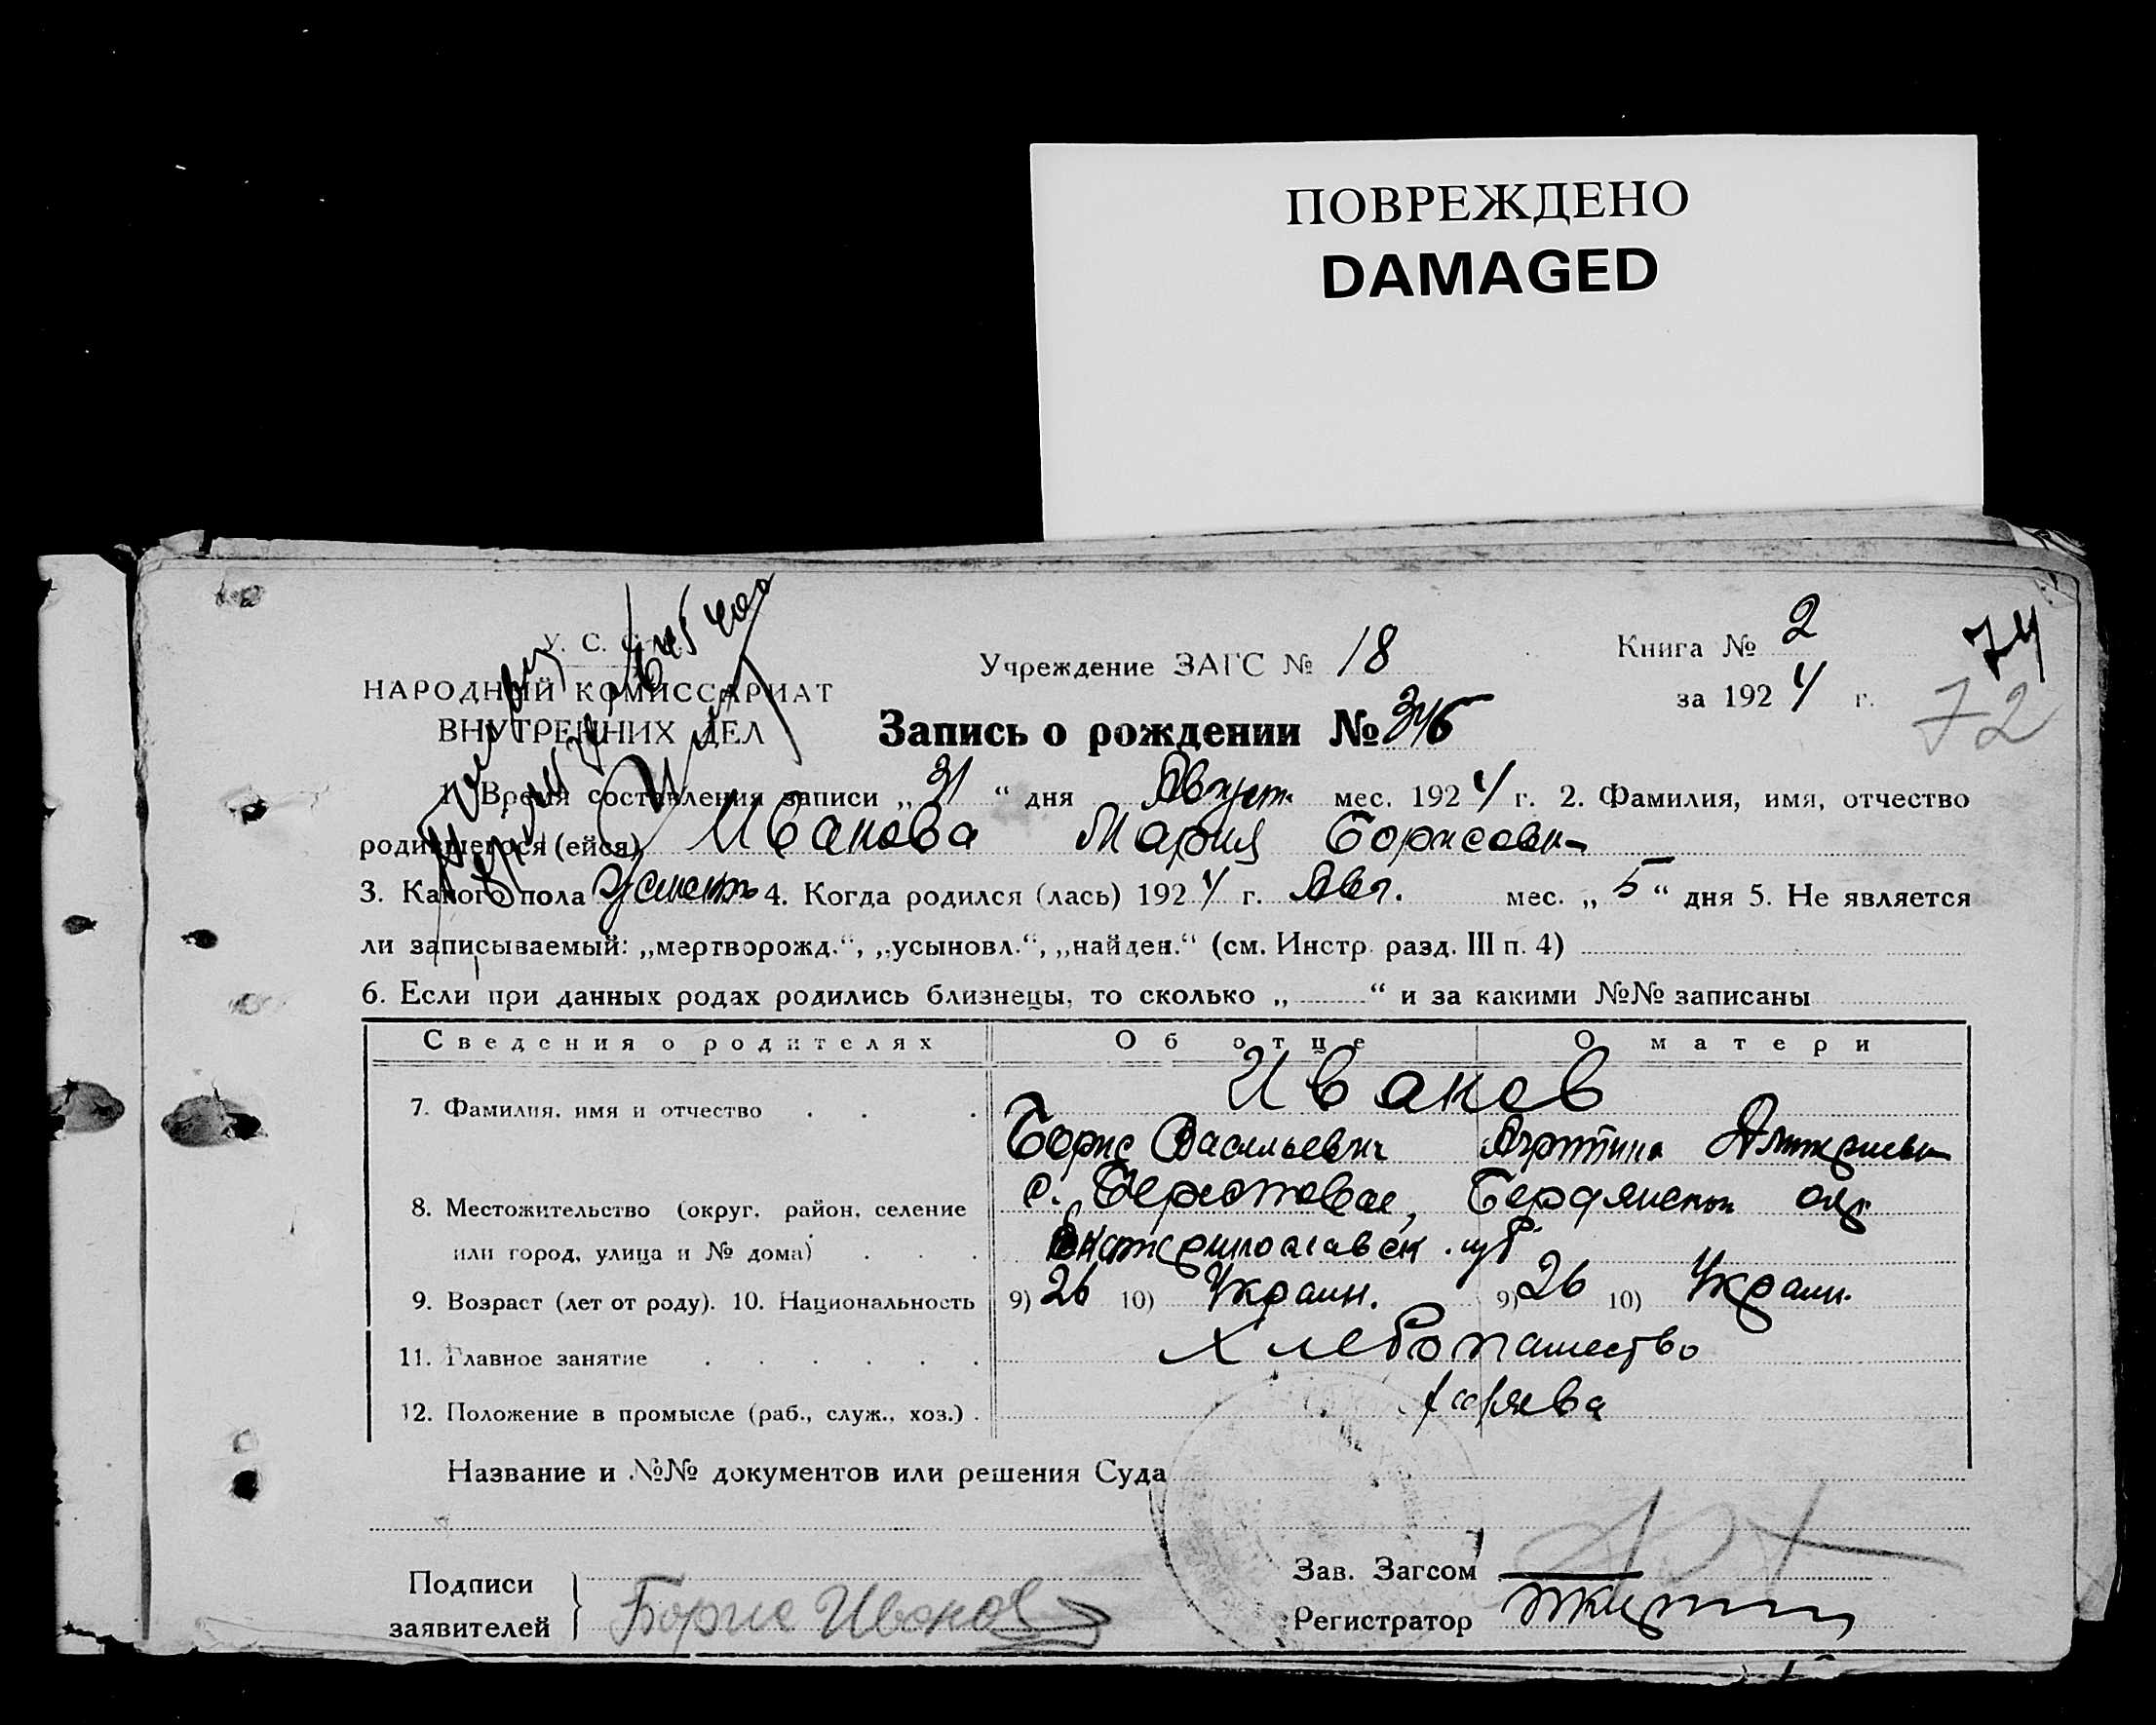 ПОВРЕЖДЕНО
DAMAGED
У. С. С.
НАРОДНЫЙ КОМИССАРИАТ
ВНУТРЕННИХ ДЕЛ
Учреждение ЗАГС № 18
Книга № 2
за 1924 г.
74
72
Запись о рождении №
1. Время составления записи „31“ дня Август мес. 1924 г. 2. Фамилия, имя, отчество
родившегося (ейся) Иванова Мария Борисовн
3. Какого пола женск 4. Когда родился (лась) 1924 г. Авг. мес. „5“ дня 5. Не является
ли записываемый: „мертворожд.“, „усыновл.“, „найден.“ (см. Инстр. разд. III п. 4)
6. Если при данных родах родились близнецы, то сколько „ “ и за какими №№ записаны
Сведения о родителях Об отце О матери
7. Фамилия, имя и отчество . . . Иванов
Борис Васильевич
8. Местожительство (округ, район, селение с. Берестовое, Бердянск окр
или город, улица и № дома) . . . Екатеринославск. губ
9. Возраст (лет от роду). 10. Национальность 9) 26 10) Украин. 9) 26 10) Украин.
11. Главное занятие . . . . . . Хлебопашество
12. Положение в промысле (раб., служ., хоз.) .
Название и №№ документов или решения Суда
Подписи
заявителей
Борис Иванов
Зав. Загсом
Регистратор